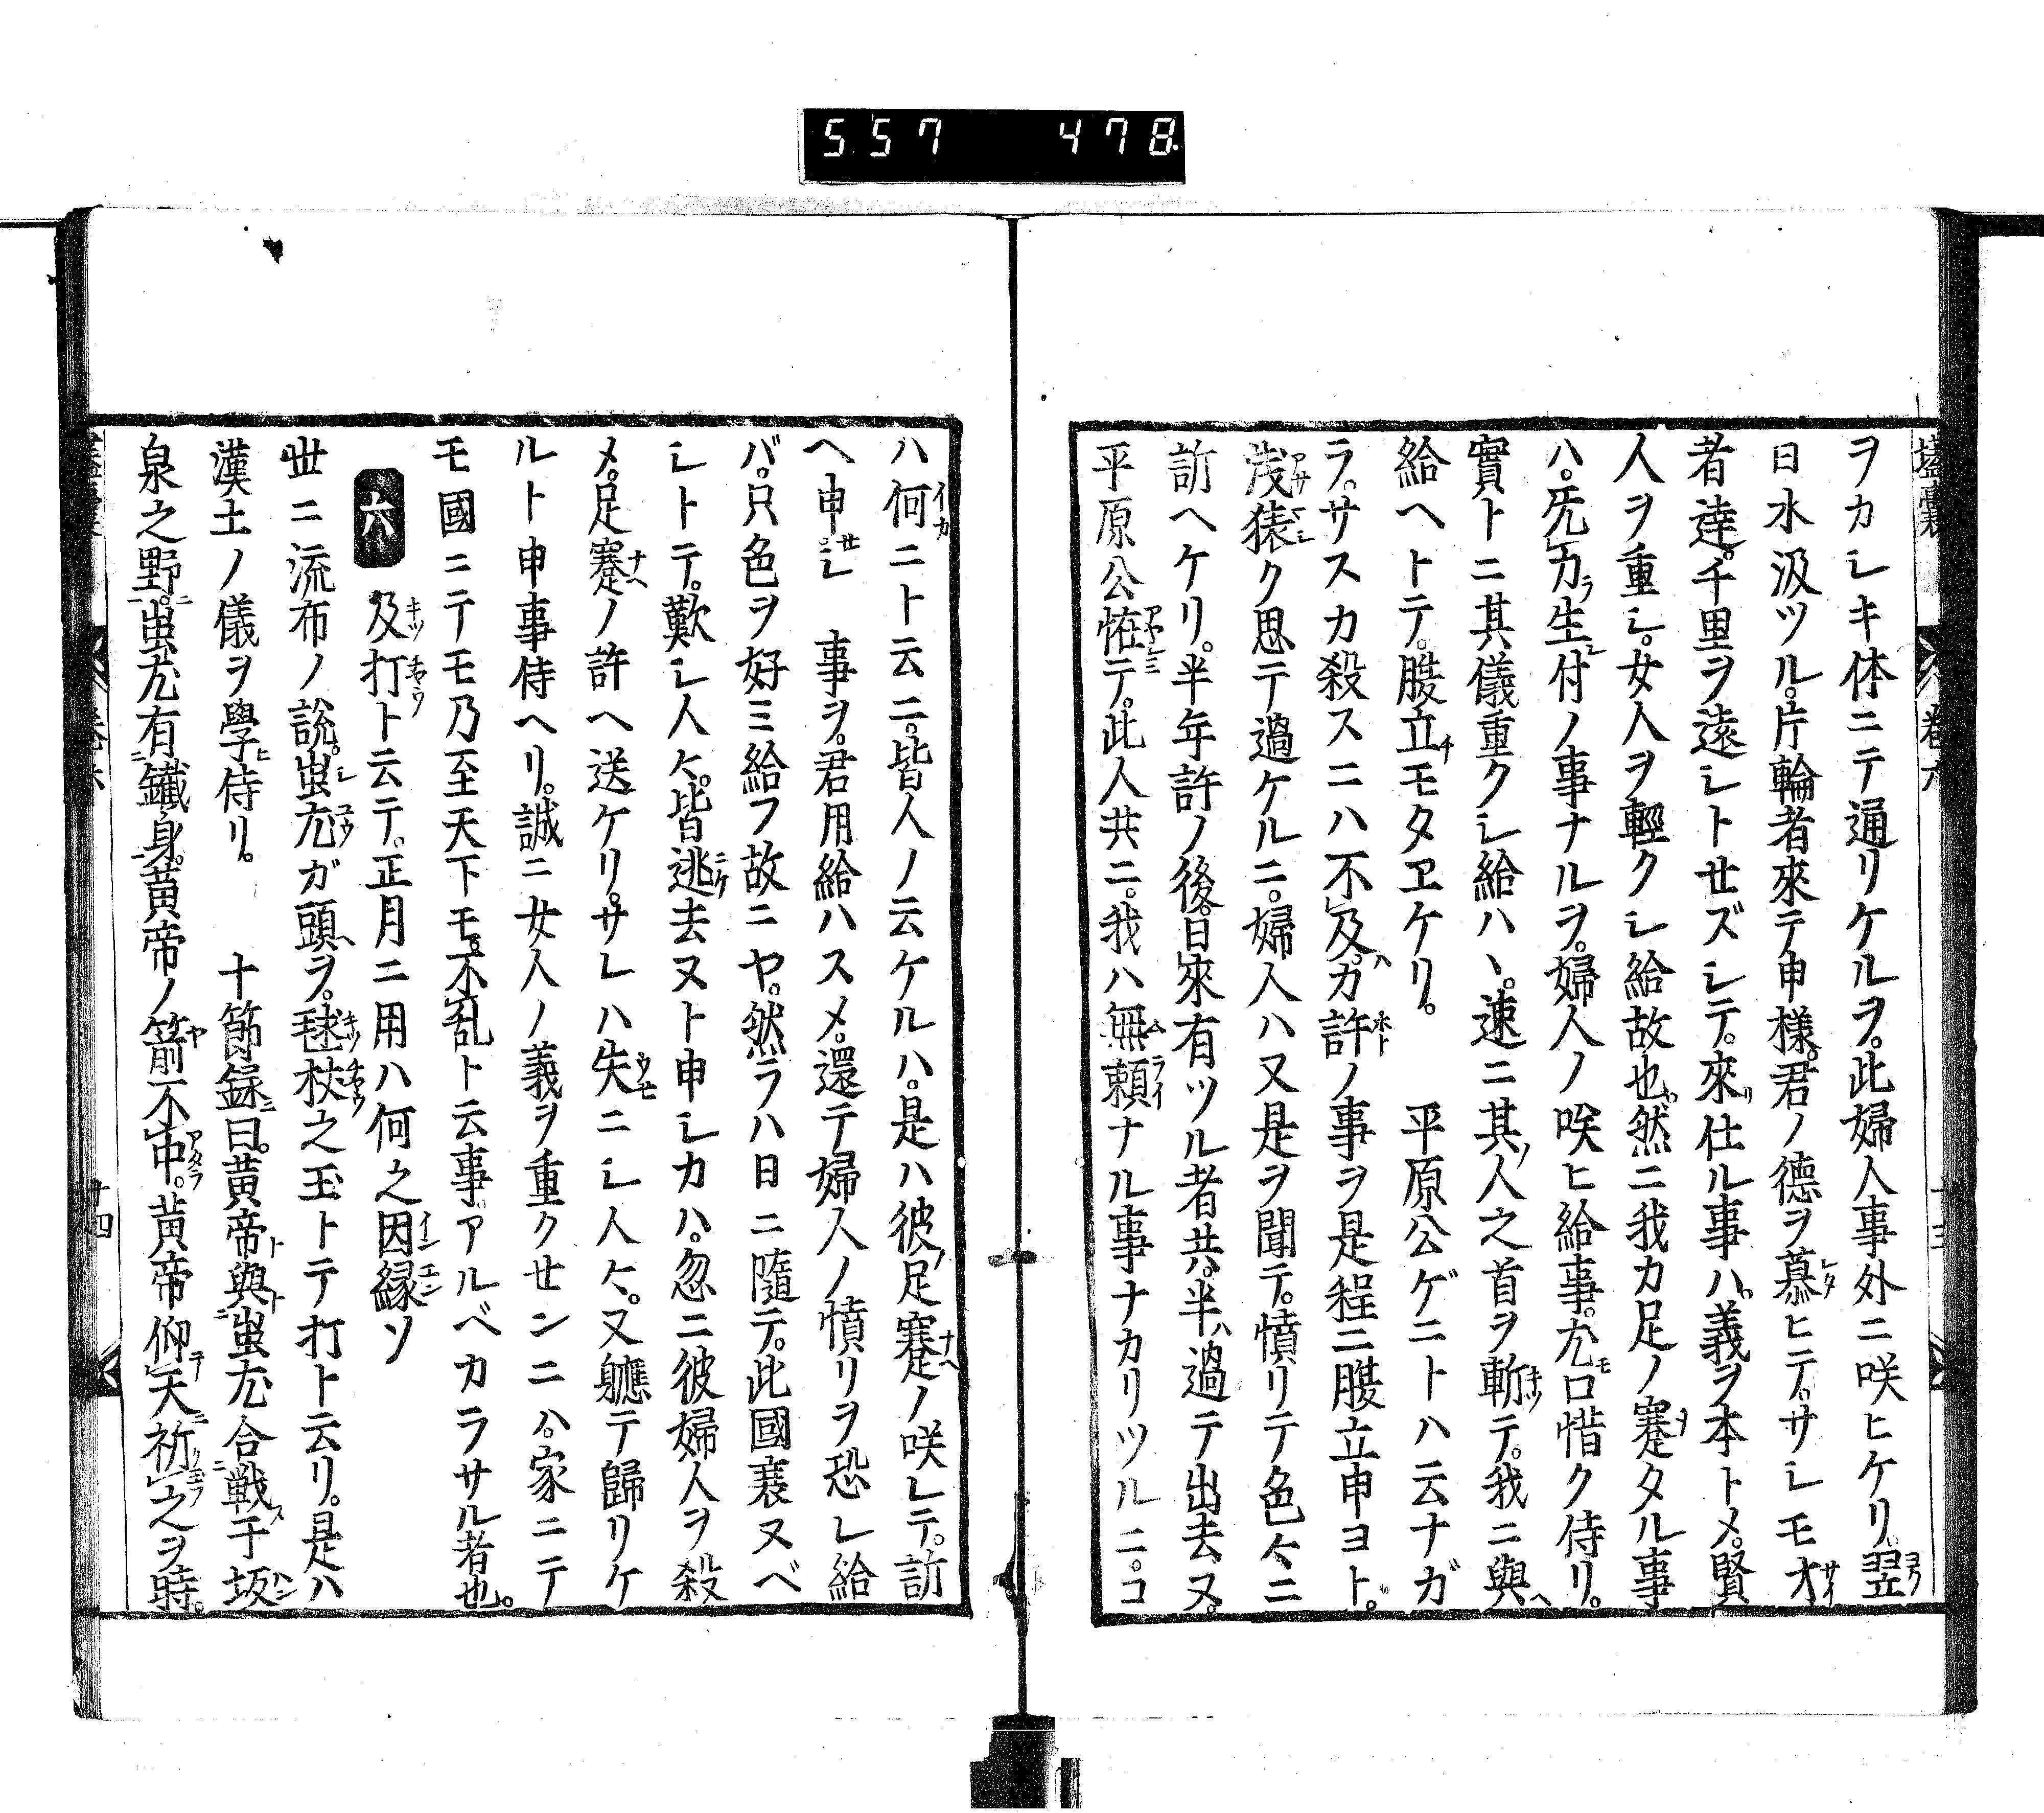 557 478
壒囊 卷六
ヲカシキ体ニテ通リケルヲ。此婦人事外ニ咲ヒケリ。翌
日水汲ツル。片輪者來テ申様。君ノ德ヲ慕ヒテ。サシモオ
者達。千里ヲ遠シトセズシテ。來仕ル事ハ。義ヲ本トメ。賢
人ヲ重シ。女人ヲ輕クシ給故也。然ニ我カ足ノ蹇タル事
ハ。乍カラ生付ノ事ナルヲ。婦人ノ咲ヒ給事。尤口惜ク侍リ。
實トニ其儀重クシ給ハヽ。速ニ其人之首ヲ斬テ。我ニ與
給ヘトテ。腹立モタヱケリ。 平原公ゲニトハ云ナガ
ラ。サスカ殺スニハ不及。カ許ノ事ヲ是程ニ腹立申ヨト。
浅猿ク思テ過ケルニ。婦人ハ又是ヲ聞テ。憤リテ色々ニ
訴ヘケリ。半年許ノ後。日來有ツル者共。半過テ出去ヌ。
平原公恠テ。此人共ニ。我ハ無頼ナル事ナカリツルニ。コ
ハ何ニト云ニ。皆人ノ云ケルハ。是ハ彼足蹇ノ咲レテ。訴
ヘ申シ 事ヲ。君用給ハスメ。還テ婦人ノ憤リヲ恐レ給
バ。只色ヲ好ミ給フ故ニヤ。然ラハ日ニ隨テ。此國衰ヌベ
シトテ。歎シ人々。皆逃去ヌト申シカハ。忽ニ彼婦人ヲ殺
メ。足蹇ノ許ヘ送ケリ。サレハ失ニシ人々。又軈テ歸リケ
ルト申事侍ヘリ。誠ニ女人ノ義ヲ重クセンニハ。家ニテ
モ國ニテモ乃至天下モ。不乱ト云事アルベカラサル者也。
六 及打ト云テ。正月ニ用ハ何之因縁ソ
世ニ流布ノ說。蚩尤ガ頭ヲ。毬杖之玉トテ打ト云リ。是ハ
漢土ノ儀ヲ學侍リ。 十節録曰。黄帝與蚩尤合戦于坂
泉之野。蚩尤有鐵身。黄帝ノ箭不中。黄帝仰天祈之ヲ時。
卷六 十四